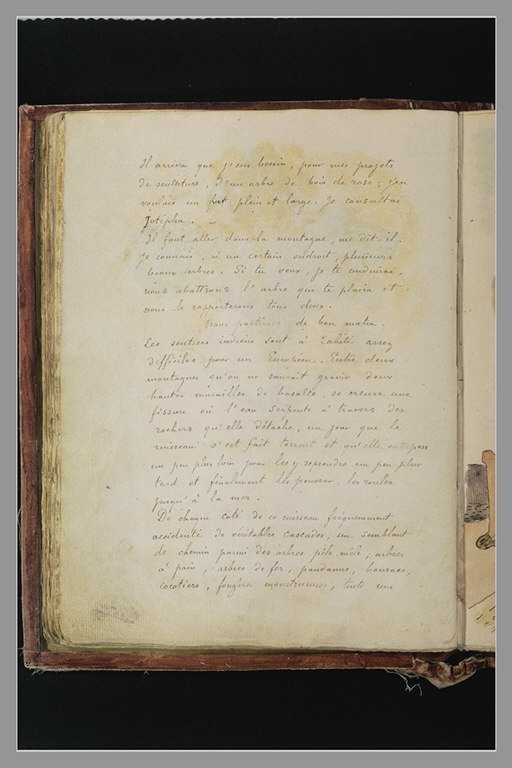 Il arriva que j'eus besoin, pour mes projets
de sculpture, d'un arbre de bois de rose; j'en
voulais un fut plein et large. Je consultai
Jotepha.
Il faut aller dans la montagne, me dit-il.
Je connais, à un certain endroit, plusieurs
beaux arbres. Si tu veux, je te conduirai,
nous abattrons l'arbre qui te plaira et
nous le rapporterons tous deux.
Nous partîmes de bon matin.
Les sentiers indiens sont à Tahiti assez
difficiles pour un Européen. Entre deux
montagnes qu'on ne saurait gravir deux
hautes murailles de basalte, se creuse une
fissure où l'eau serpente à travers des
rochers qu'elle détache, un jour que le
ruisseau s'est fait torrent et qu'elle entrepose
un peu plus loin pour les y reprendre un peu plus
tard et finalement les pousser, les rouler
jusqu'à la mer.
De chaque coté de ce ruisseau fréquemment
accidenté de véritables cascades, un semblant
de chemin parmi des arbres pêle mêle, arbres
à pain, arbres de fer, pandanus, bouraos,
cocotiers, fougères monstrueuses, toute une